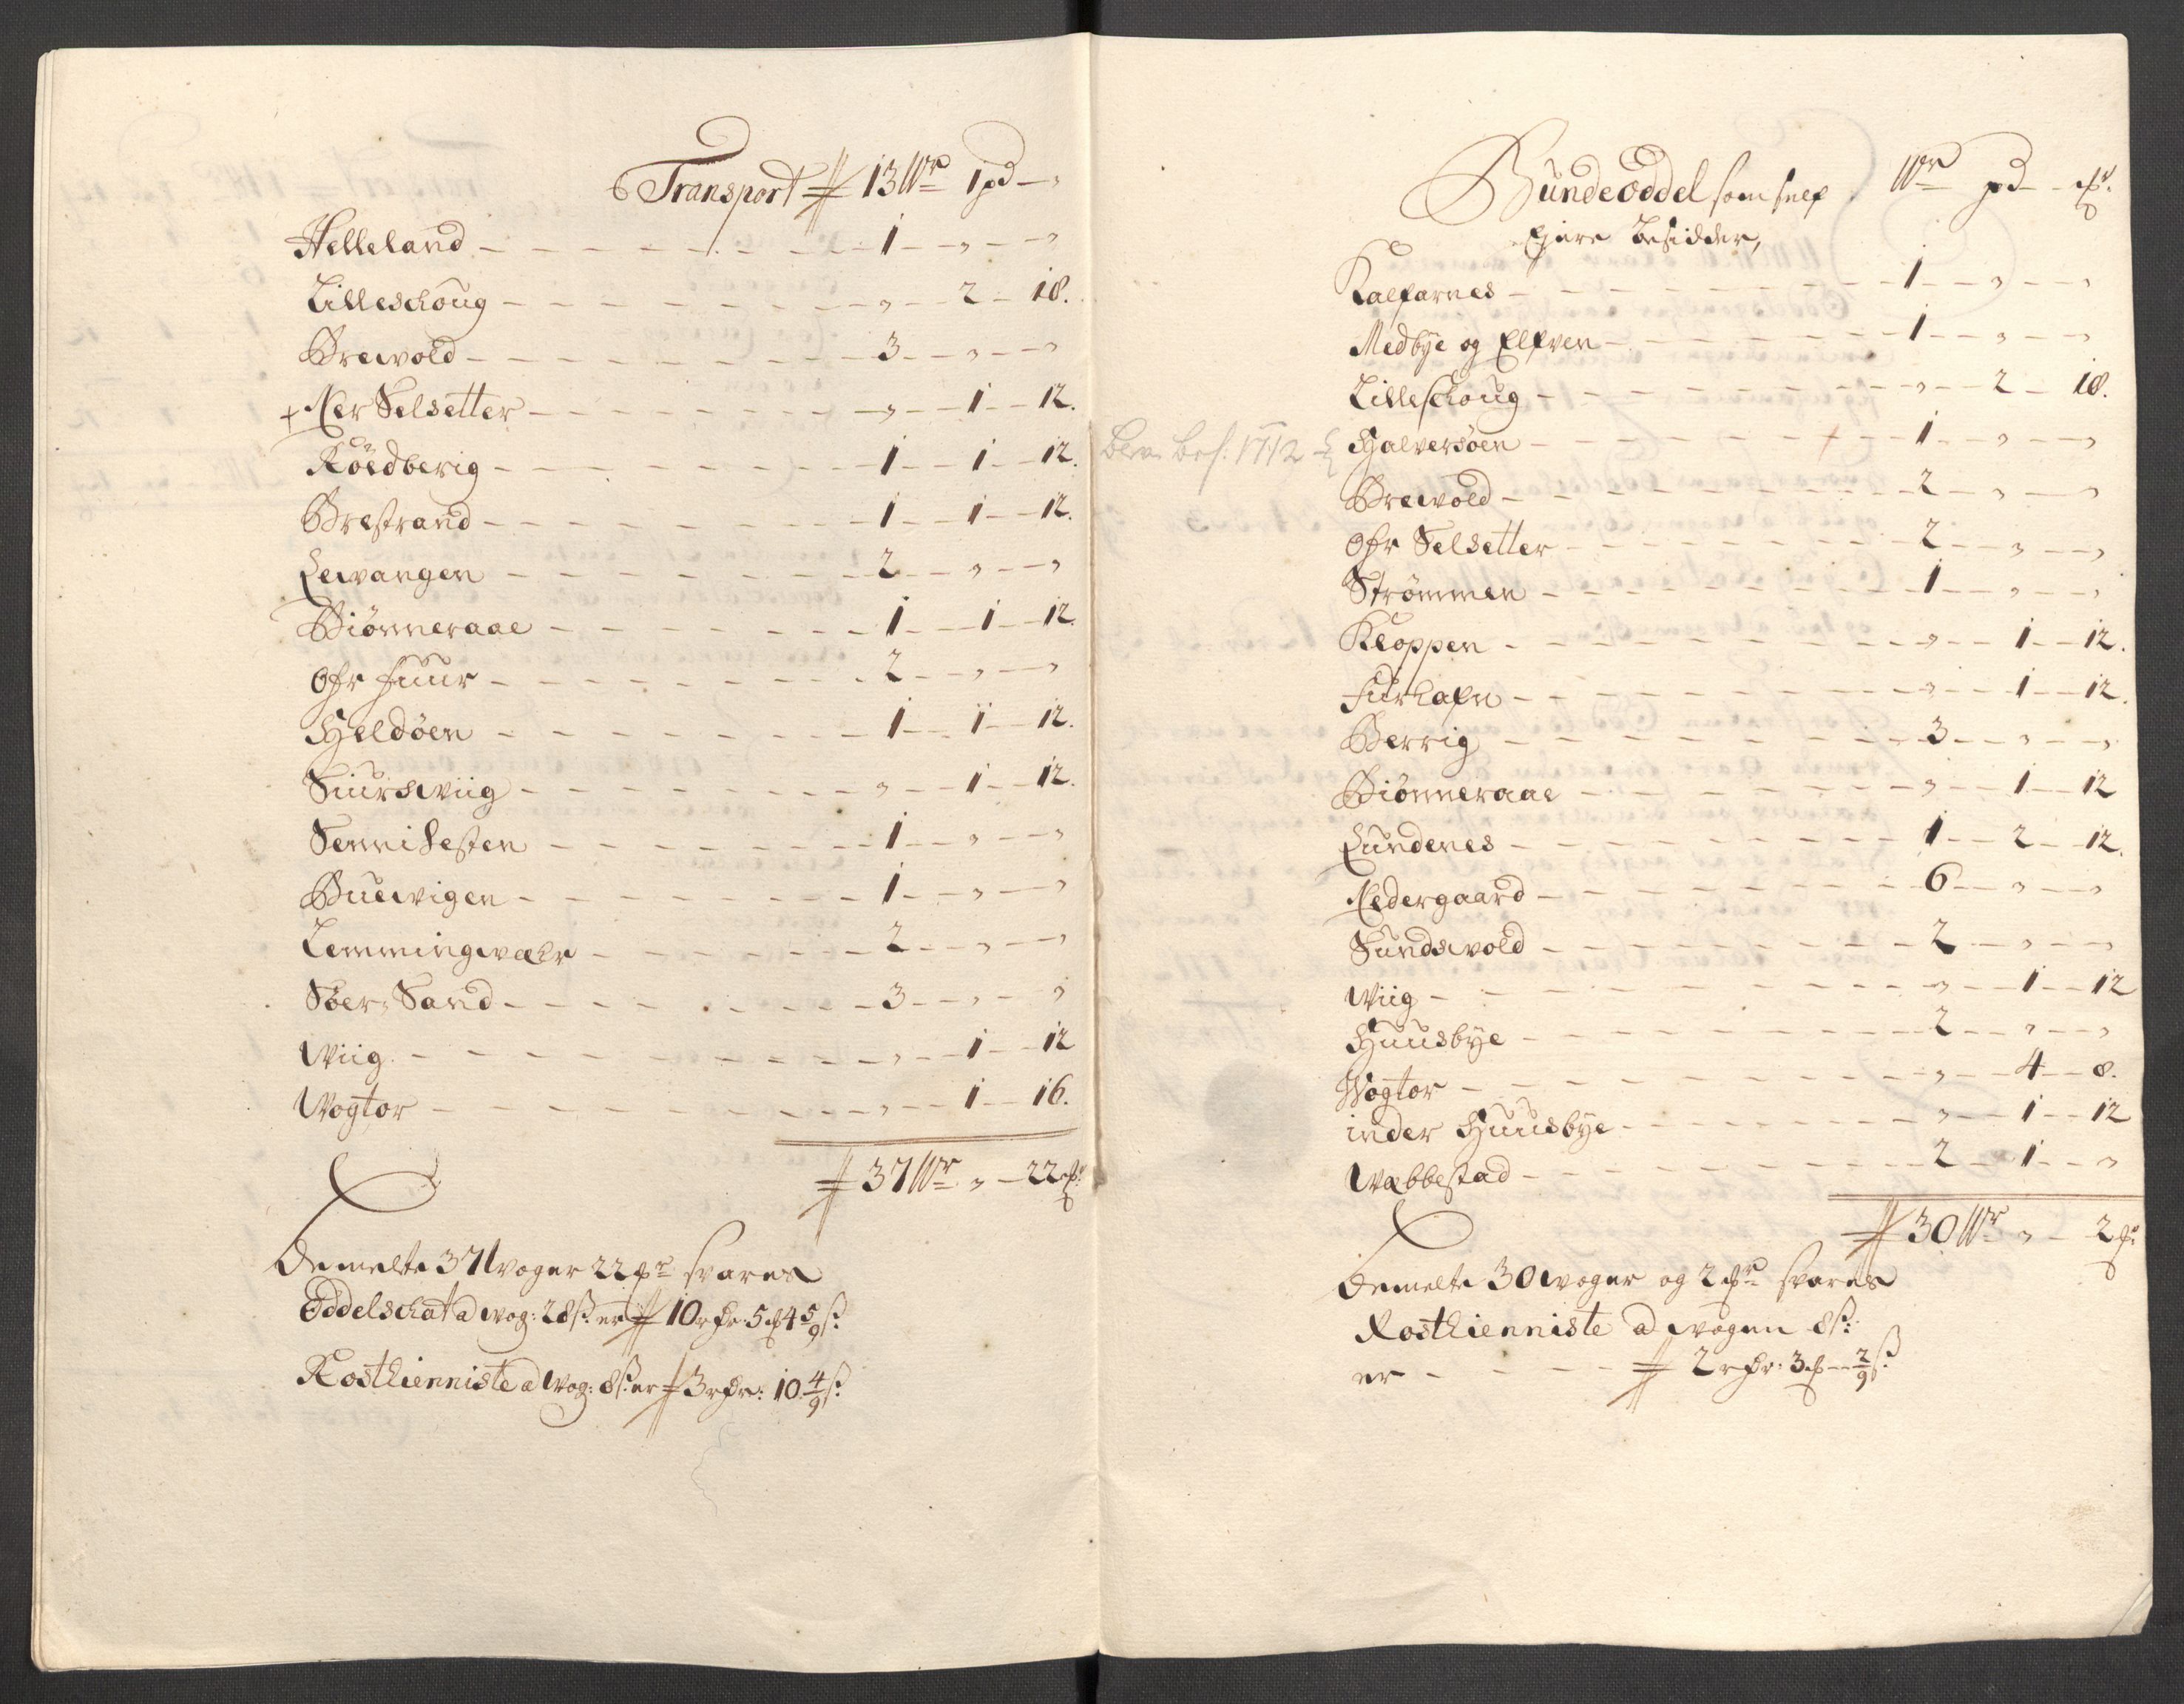 Transport 13 Wr 1 pd - "
Helleland - 1 - " - "
Lilleschoug - " - 2 - 18.
Brewold - 3 - " - "
+ Ner Selsetter - " - 1 - 12.
Röedberig - 1 - 1 - 12.
Brestrand - 1 - 1 - 12.
Lewangen - 2 - " - "
Biönneraae - 1 - 1 - 12.
Ofr Fuur - 2 - " - "
Heldöen - 1 - 1 - 12.
Siurswiig - " - 1 - 12.
Sennihesten - 1 - " - "
Buewigen - 1 - " - "
Lemmingwær - 2 - " - "
Söer Sand - 3 - " - "
Wiig - " - 1 - 12
Wogtor - " - 1 - 16.
37 Wr " - 22
Bemelte 37 Woger 22 svarer
Oddelschat a wog: 28 ß er 10 5 4 5/9 ß
Rosthienniste a Wog: 8 ß er 3 10 4/9 ß
Bundeoddel som self Wr pd
Ejere besidder,
Kalfarnes - 1 - " - "
Medbye og Elfven - 1 - " - "
Lilleschoug - " - 2 - 18.
1712 Halversöen - 1 - " - "
Brewold - 2 - " - "
Ofr Selsetter - 2 - " - "
Strømmen - 1 - " - "
Kloppen - " - 1 - 12.
Furhafn - " - 1 - 12.
Berrig - 3 - " - "
Biönneraae - " - 1 - 12
Lundenes - 1 - 2 - 12.
Nedergaard - 6 - " - "
Sundswold - 2 - " - "
Wiig - " - 1 - 12
Huusbye - 2 - " - "
Wogtor - " - 4 - 8.
inder Huusbye - " - 1 - 12
Wabbestad - 2 - 1 - "
30 Wr " - 2
Bemelte 30 woger og 2 svarer
Rosthienniste a wogen 8 ß:
er - 2 3 2/9 ß